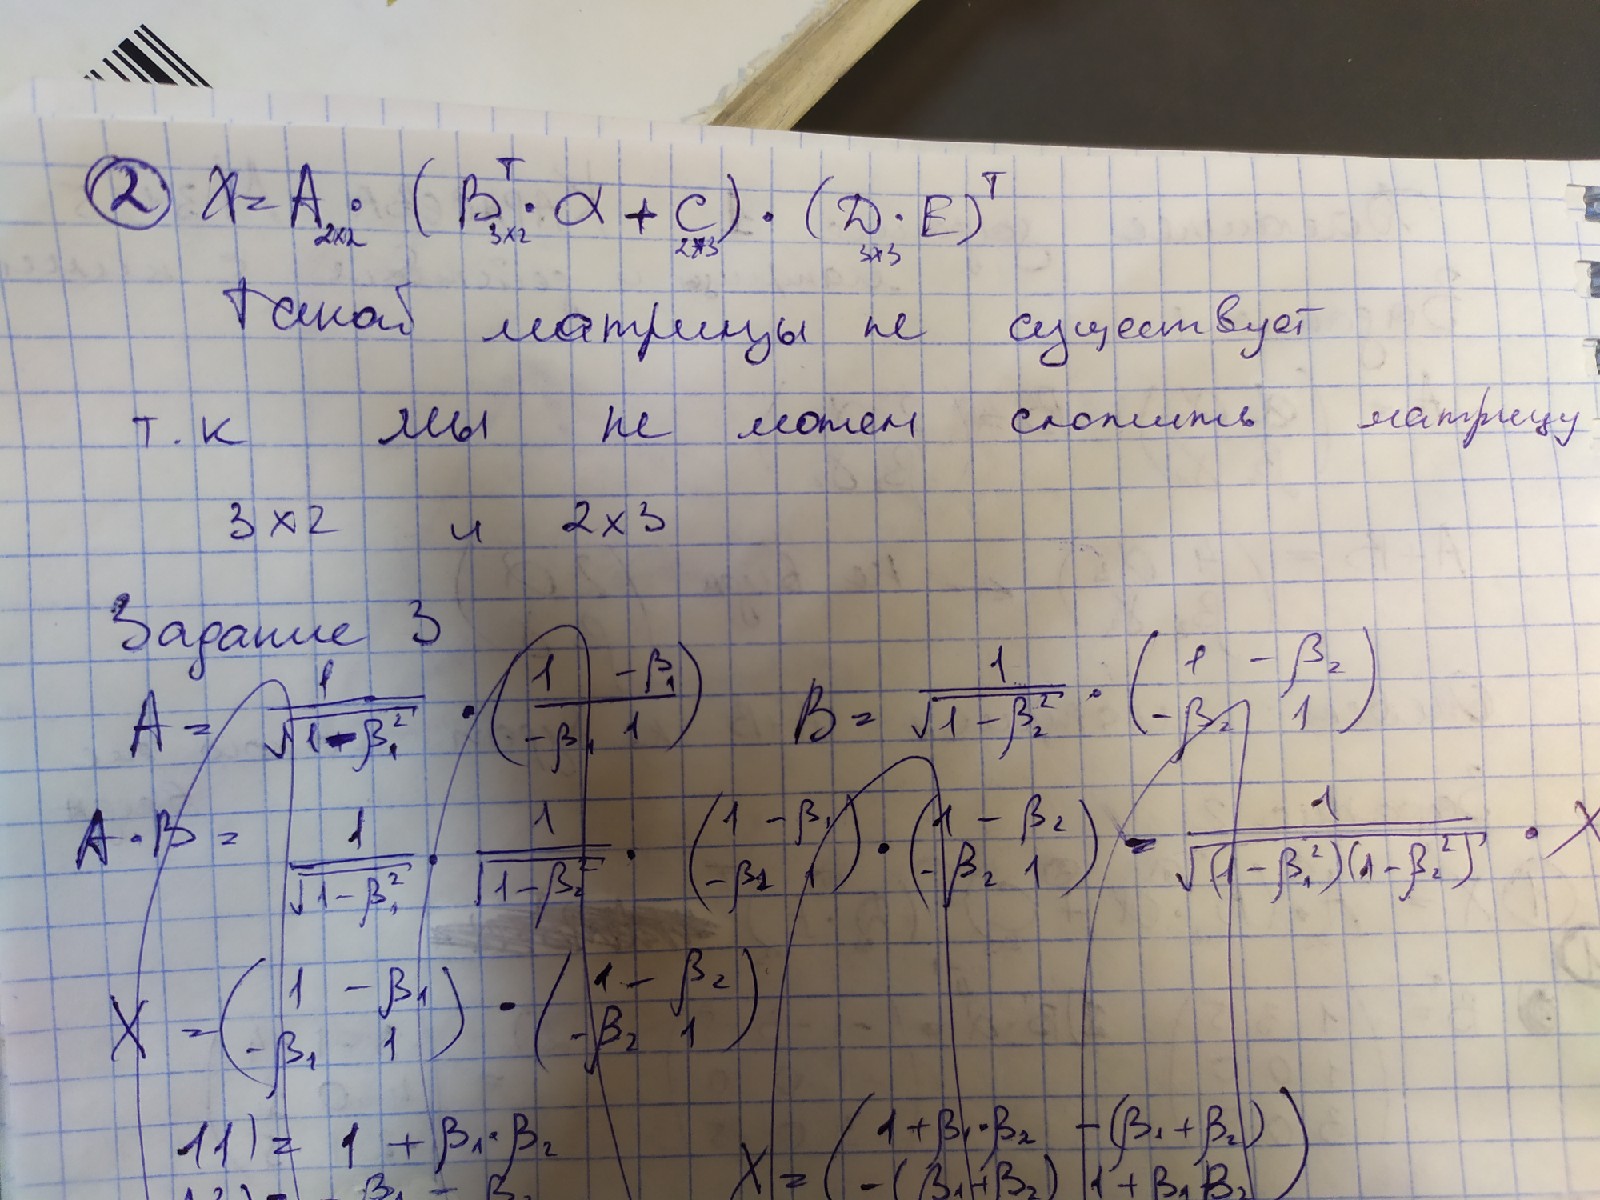 ② X = A₂ₓ₂ · (Bᵀ₃ₓ₂ · α + C₂ₓ₃) · (D₃ₓ₃ · E)ᵀ
Такой матрицы не существует
т.к мы не можем сложить матрицу
3x2 и 2x3
Задание 3
A = 1/√(1-β₁²) · (1 -β₁; -β₁ 1) B = 1/√(1-β₂²) · (1 -β₂; -β₂ 1)
A·B = 1/√(1-β₁²) · 1/√(1-β₂²) · (1 -β₁; -β₁ 1) · (1 -β₂; -β₂ 1) = 1/√((1-β₁²)(1-β₂²)) · X
X = (1 -β₁; -β₁ 1) · (1 -β₂; -β₂ 1)
11) = 1 + β₁·β₂ X = (1+β₁·β₂ -(β₁+β₂); -(β₁+β₂) 1+β₁β₂)
12) = -β₁ - β₂